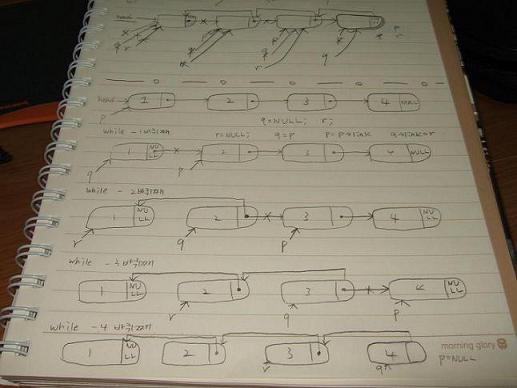 head
r q p
q r
p
head 1 2 3 4 NULL
p
q=NULL; r;
while - 1바퀴째 r=NULL; q=p p=p→link q→link=r
1 NULL 2 3 4 NULL
q p
while - 2바퀴째
1 NULL 2 3 4
r q p
while - 3바퀴째
1 NULL 2 3 4
r q p
while - 4바퀴째
1 NULL 2 3 4
r q p=NULL
morning glory